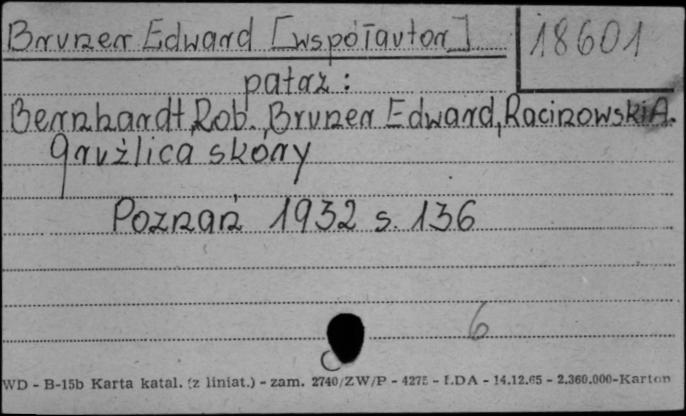 Bruner Edward [współautor]
18601
patrz:
Bernhardt, Rob., Bruner Edward, Racinowski A.
Gruźlica skóry
Poznań 1932 s. 136
6
WD - B-15b Karta katal. (z liniat.) - zam. 2740/ZW/P - 4275 - LDA - 14.12.65 - 2.360.000-Karton